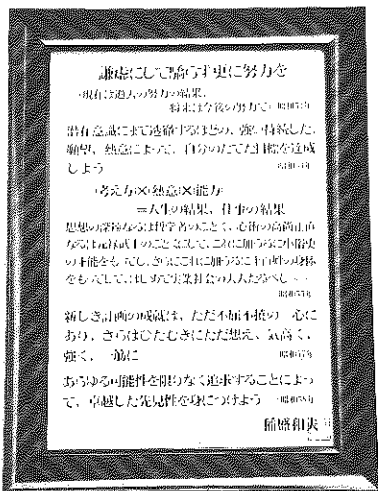 謙虚にして驕らず更に努力を
現在は過去の努力の結果、
将来は今後の努力で
潜在意識にまで透徹するほどの、強い持続した、
願望、熱意によって、自分のたてた目標を達成
しよう
考え方×熱意×能力
=人生の結果、仕事の結果
思想の深遠なるは哲学者のごとく、心術の高尚正直
なるは元禄武士のごとくにして、これに加うるに小俗吏
の才能をもってし、さらにこれに加うるに土百姓の身体
をもってして、はじめて実業社会の大人たるべし
新しき計画の成就は、ただ不屈不撓の一心に
あり、さらばひたむきにただ想え、気高く、
強く、一筋に
昭和57年
あらゆる可能性を限りなく追求することによっ
て、卓越した先見性を身につけよう 昭和58年
稲盛和夫